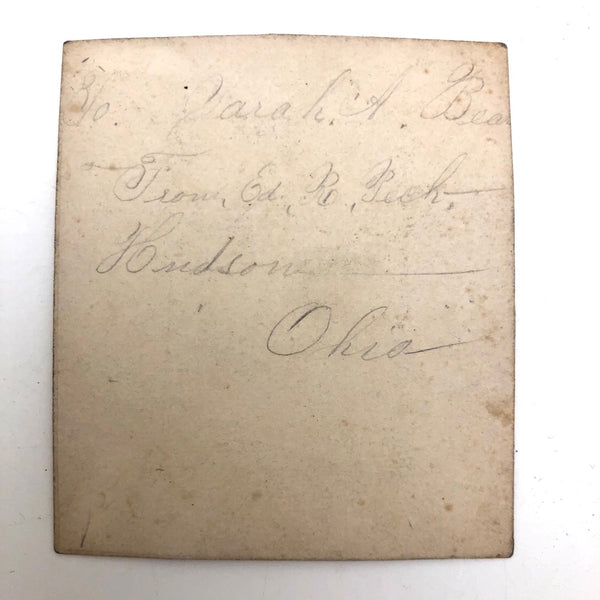 To. Sarah. A. Bea
From, Ed, R, Peck,
Hudson
Ohio